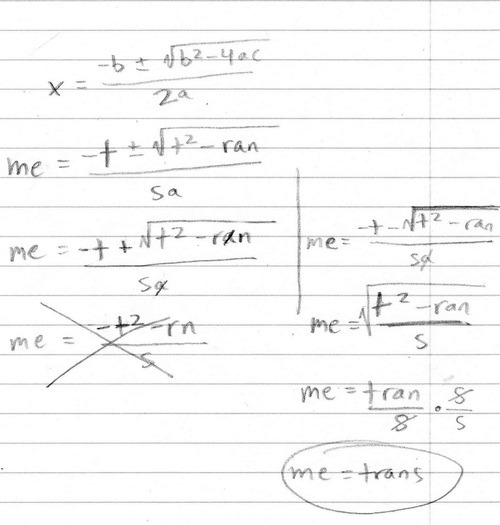 x = (-b ± √(b² - 4ac)) / 2a
me = (-t ± √(t² - ran)) / sa
me = (-t + √(t² - ran)) / sa
me = (-t² - rn) / s
me = (-t - √(t² - ran)) / sa
me = √((t² - ran) / s)
me = tran/8 · 8/s
me = trans